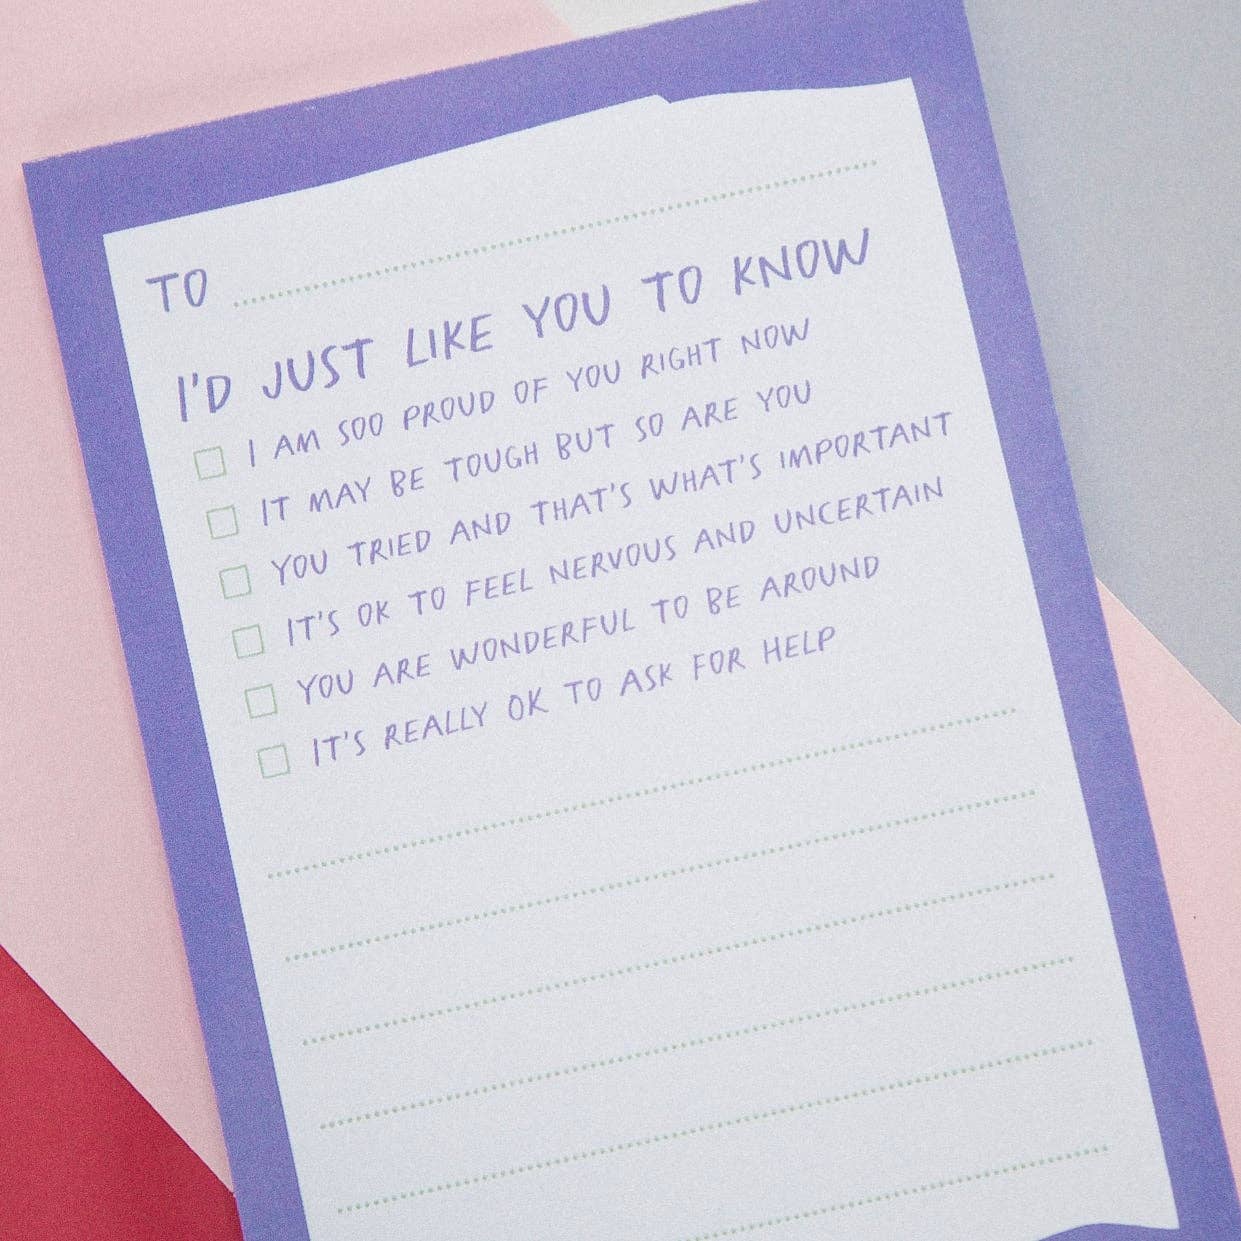 TO
I'D JUST LIKE YOU TO KNOW
I AM SOO PROUD OF YOU RIGHT NOW
IT MAY BE TOUGH BUT SO ARE YOU
YOU TRIED AND THAT'S WHAT'S IMPORTANT
IT'S OK TO FEEL NERVOUS AND UNCERTAIN
YOU ARE WONDERFUL TO BE AROUND
IT'S REALLY OK TO ASK FOR HELP